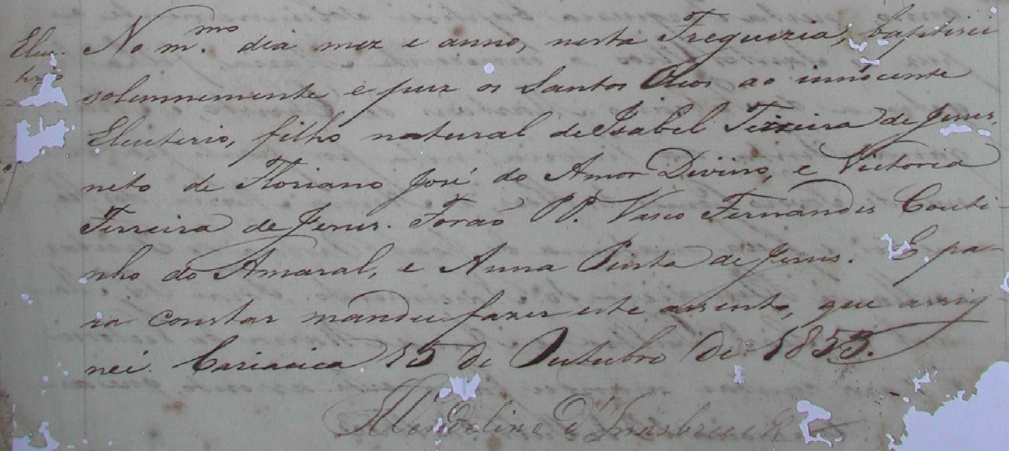 Eleu-
terio
No m.mo dia mez e anno, nesta Freguezia, baptisei
solemnemente e puz os Santos Oleos ao innocente
Eleuterio, filho natural de Isabel Ferreira de Jesus,
neto de Floriano José do Amor Divino, e Victoria
Ferreira de Jesus. Forão PP. Vasco Fernandes Couti
nho do Amaral, e Anna Pinta de Jesus. E pa-
ra constar mandei fazer este assento, que assig
nei. Cariacica 15 de Outubro de 1853.
Wendelino d'Innsbruck